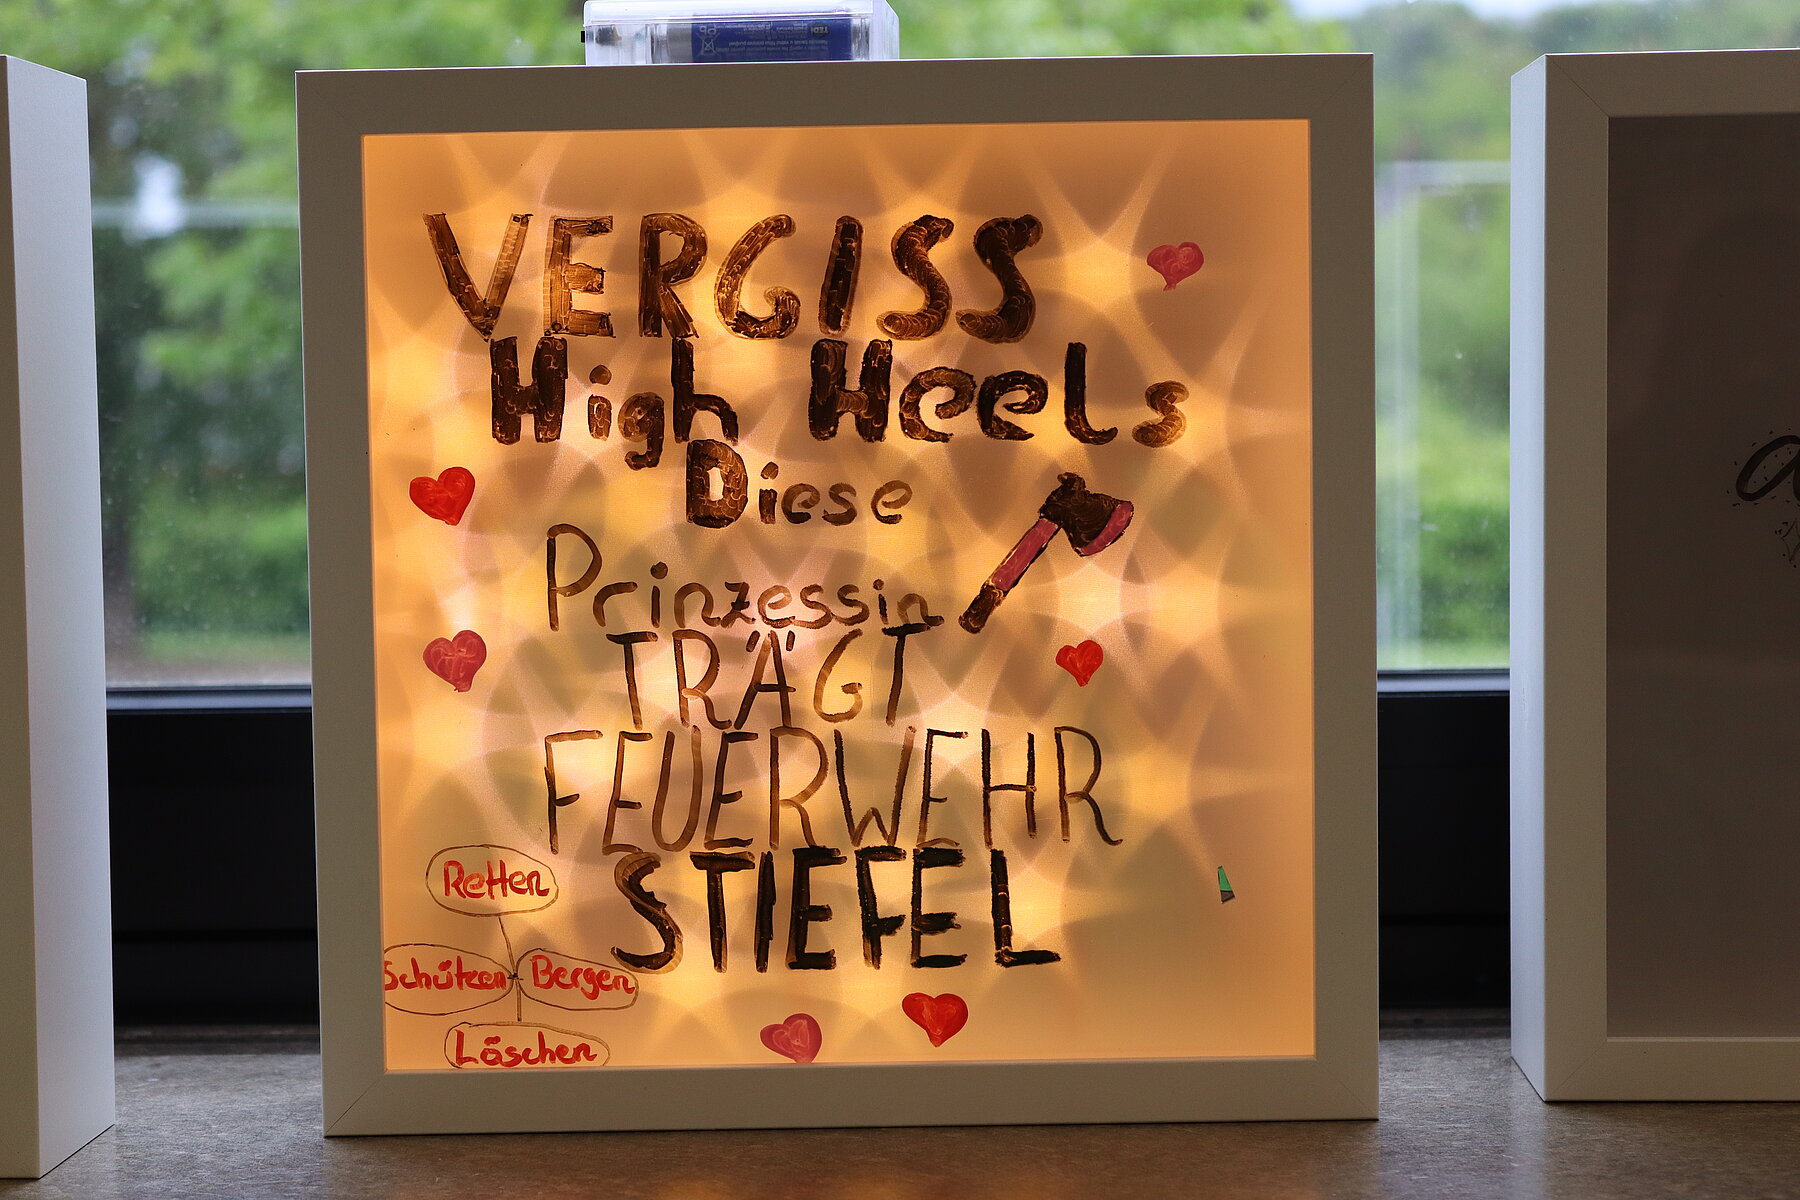 VERGISS
High Heels
Diese
Prinzessin
TRÄGT
FEUERWEHR
STIEFEL
Retten
Schützen Bergen
Löschen